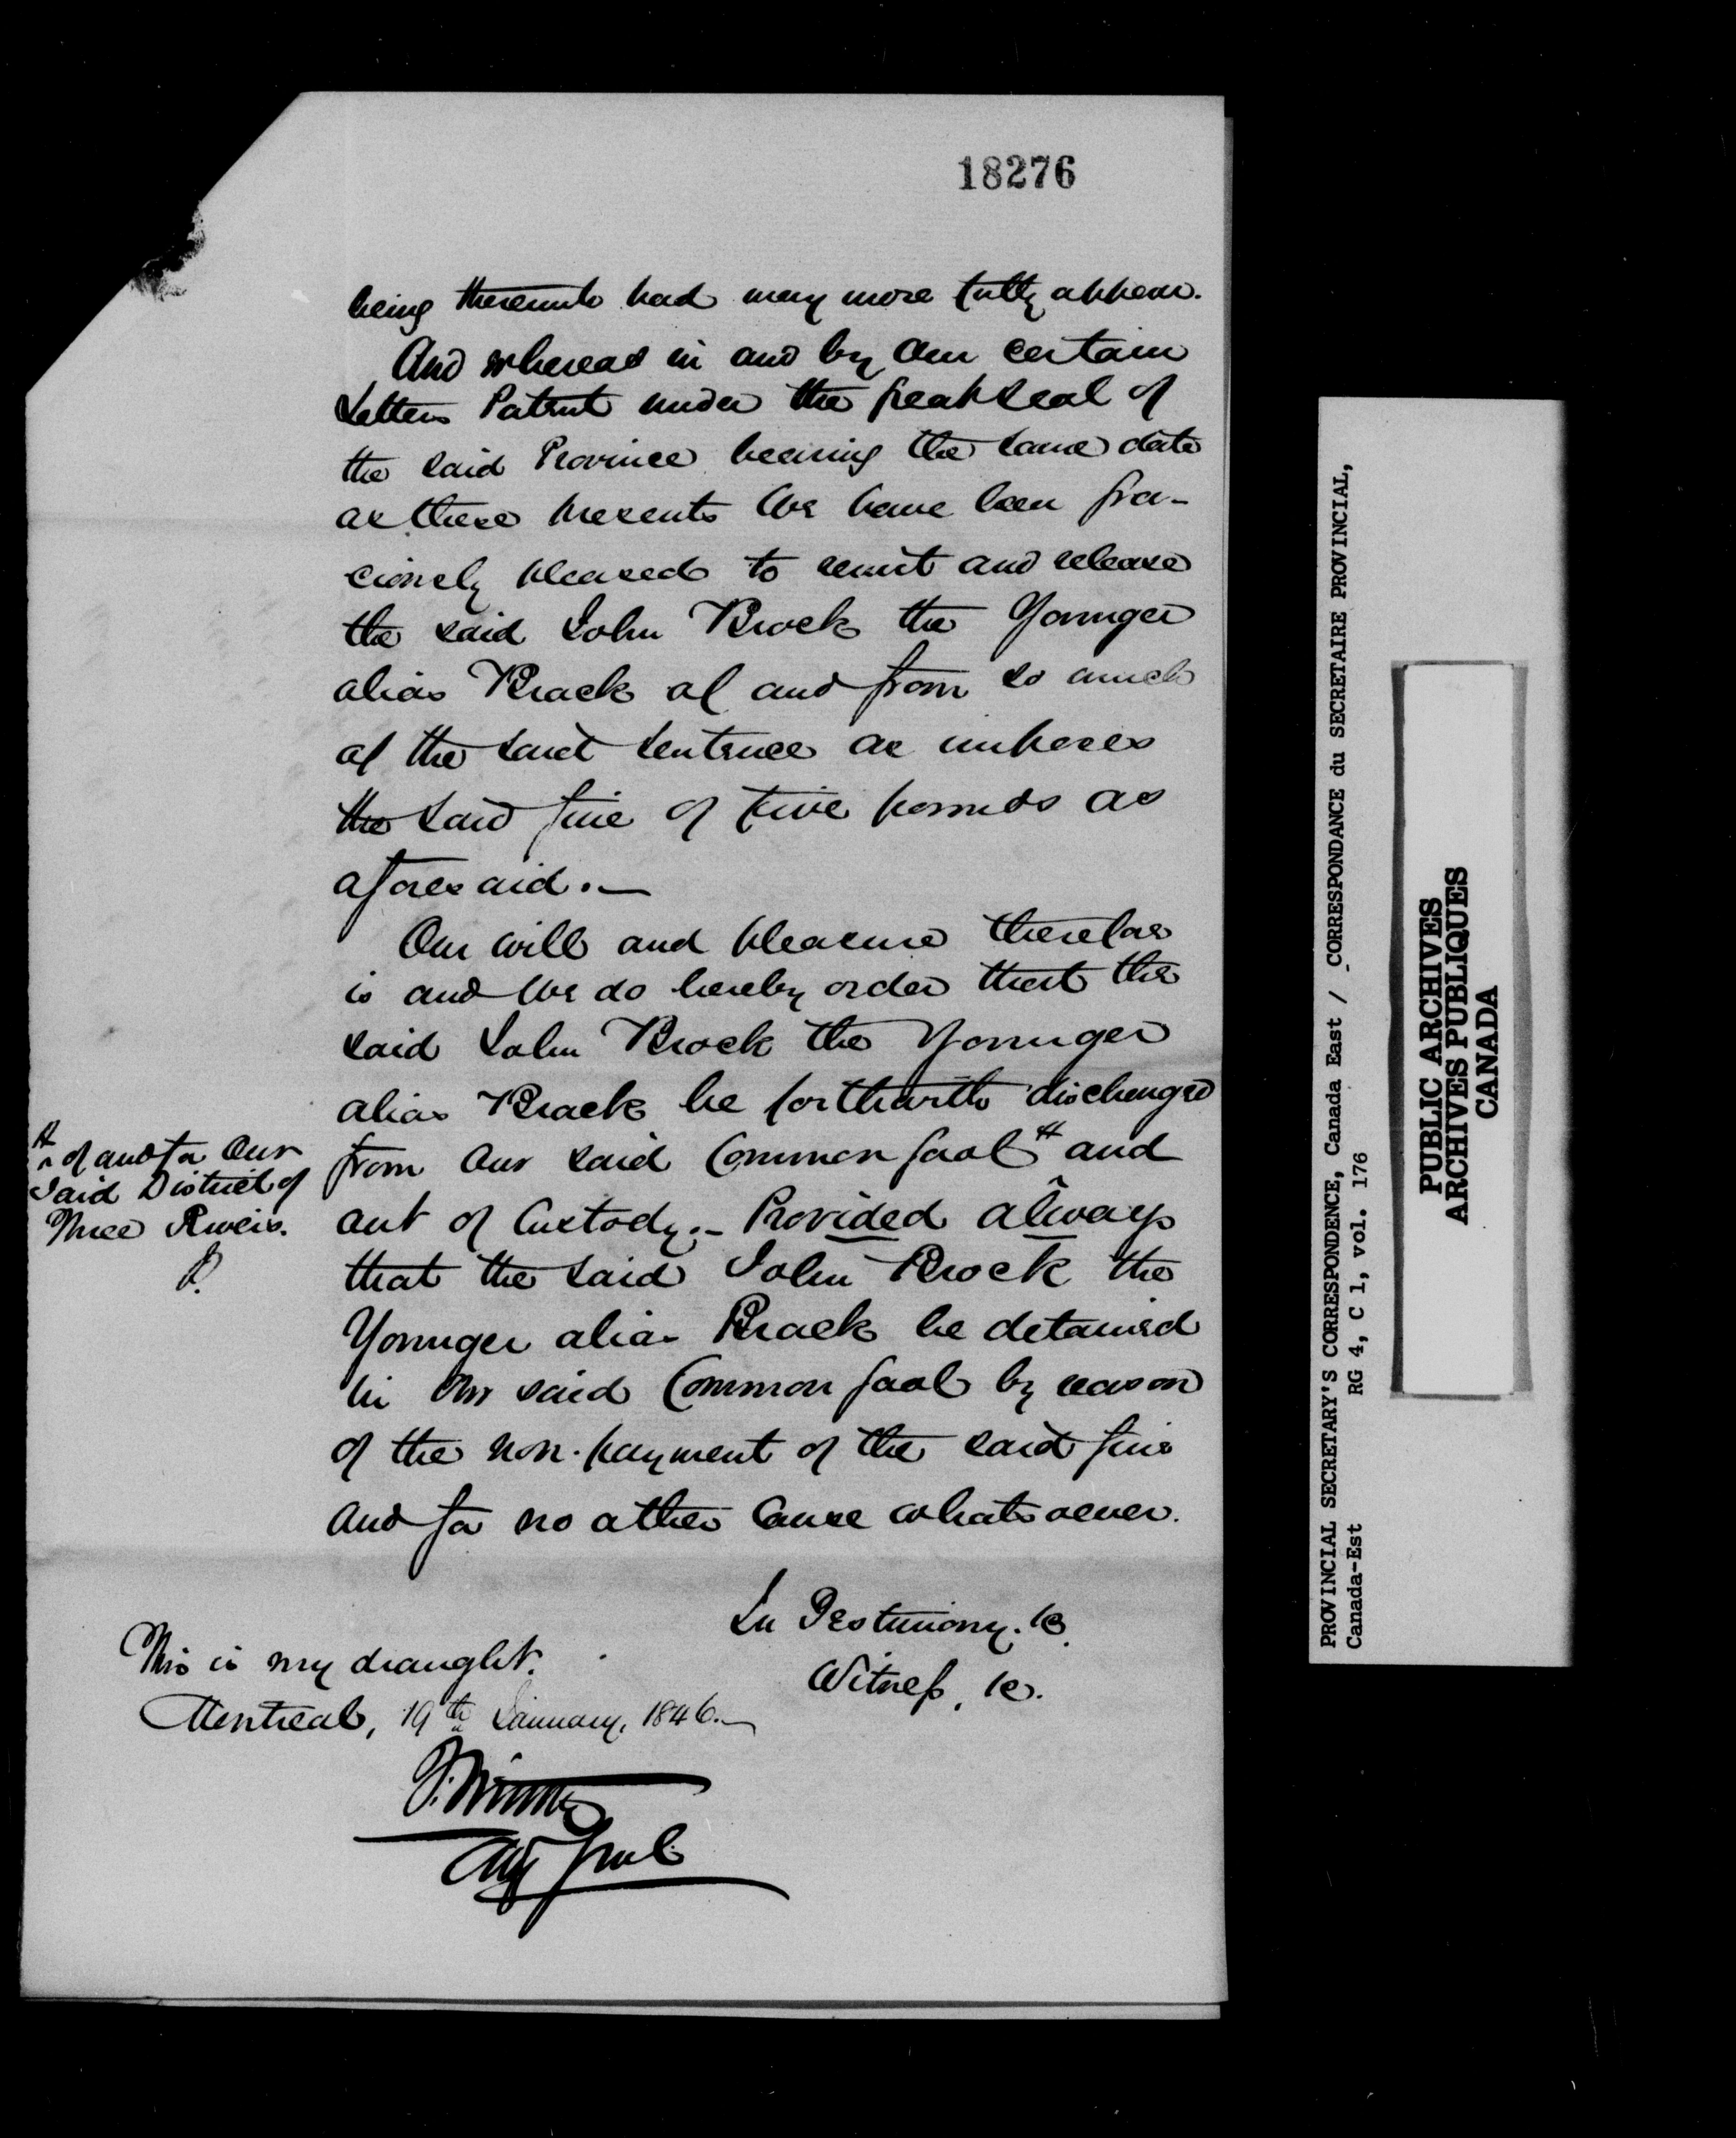 18276
being thereunto had may more fully appear.
And whereas in and by Our certain
Letters Patent under the Great Seal of
the said Province bearing the same date
as these presents We have been gra-
ciously pleased to remit and release
the said John Brock the Younger
alias Brack of and from so much
of the said Sentence as imposes
the said fine of five pounds as
aforesaid.—
Our will and pleasure therefore
is and We do hereby order that the
said John Brock the Younger
alias Brack be forthwith discharged
from Our said Common Gaol # and
out of Custody.— Provided always
that the said John Brock the
Younger alias Brack be detained
in Our said Common Gaol by reason
of the non-payment of the said fine
and for no other Cause whatsoever.
# ^ of and for Our
Said District of
Three Rivers.
In Testimony. &c.
Witness, &c.
This is my draught.
Montreal, 19th January, 1846.—
Atty Genl
PROVINCIAL SECRETARY'S CORRESPONDENCE, Canada East / CORRESPONDANCE du SECRETAIRE PROVINCIAL,
Canada-Est RG 4, C 1, vol. 176
PUBLIC ARCHIVES
ARCHIVES PUBLIQUES
CANADA